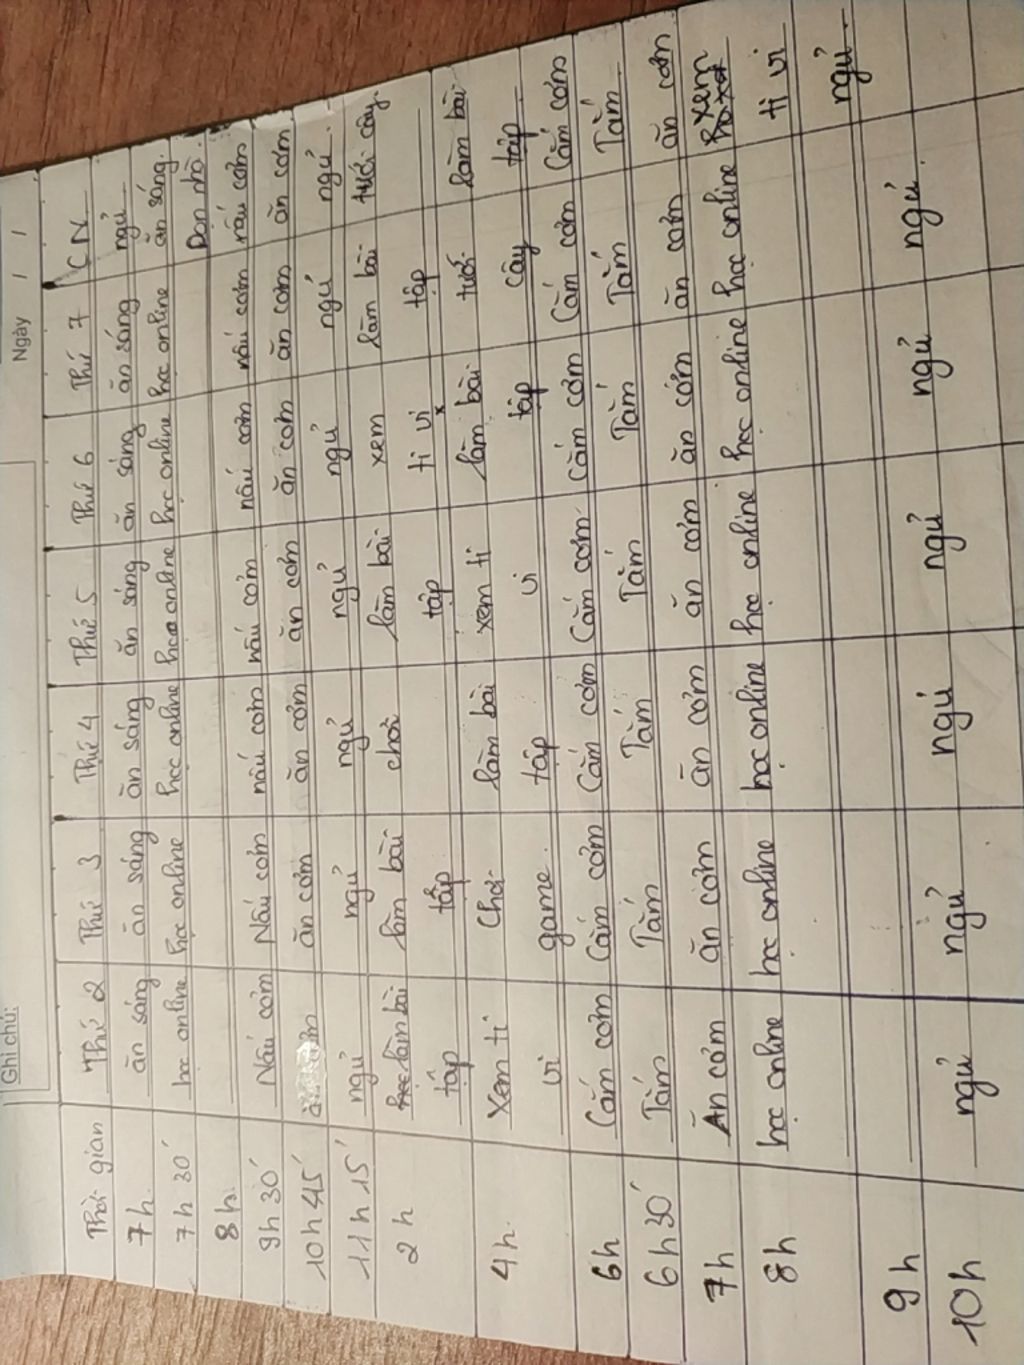 Ghi chú:
Ngày / /
Thời gian Thứ 2 Thứ 3 Thứ 4 Thứ 5 Thứ 6 Thứ 7 CN
7h ăn sáng ăn sáng ăn sáng ăn sáng ăn sáng ăn sáng ngủ
7h 30' học online học online học online học online học online học online ăn sáng
8h Dọn nhà
9h 30' Nấu cơm Nấu cơm nấu cơm nấu cơm nấu cơm nấu cơm nấu cơm
10h 45' ăn cơm ăn cơm ăn cơm ăn cơm ăn cơm ăn cơm
11h 15' ngủ ngủ ngủ ngủ ngủ ngủ ngủ
2h làm bài làm bài chơi làm bài xem làm bài tưới cây
tập tập tập ti vi tập
4h Xem ti chơi làm bài xem ti làm bài tưới làm bài
vi game tập vi tập cây tập
6h Cắm cơm Cắm cơm Cắm cơm Cắm cơm Cắm cơm Cắm cơm Cắm cơm
6h30' Tắm Tắm Tắm Tắm Tắm Tắm Tắm
7h Ăn cơm ăn cơm ăn cơm ăn cơm ăn cơm ăn cơm ăn cơm
8h học online học online học online học online học online học online xem
ti vi
9h ngủ
10h ngủ ngủ ngủ ngủ ngủ ngủ